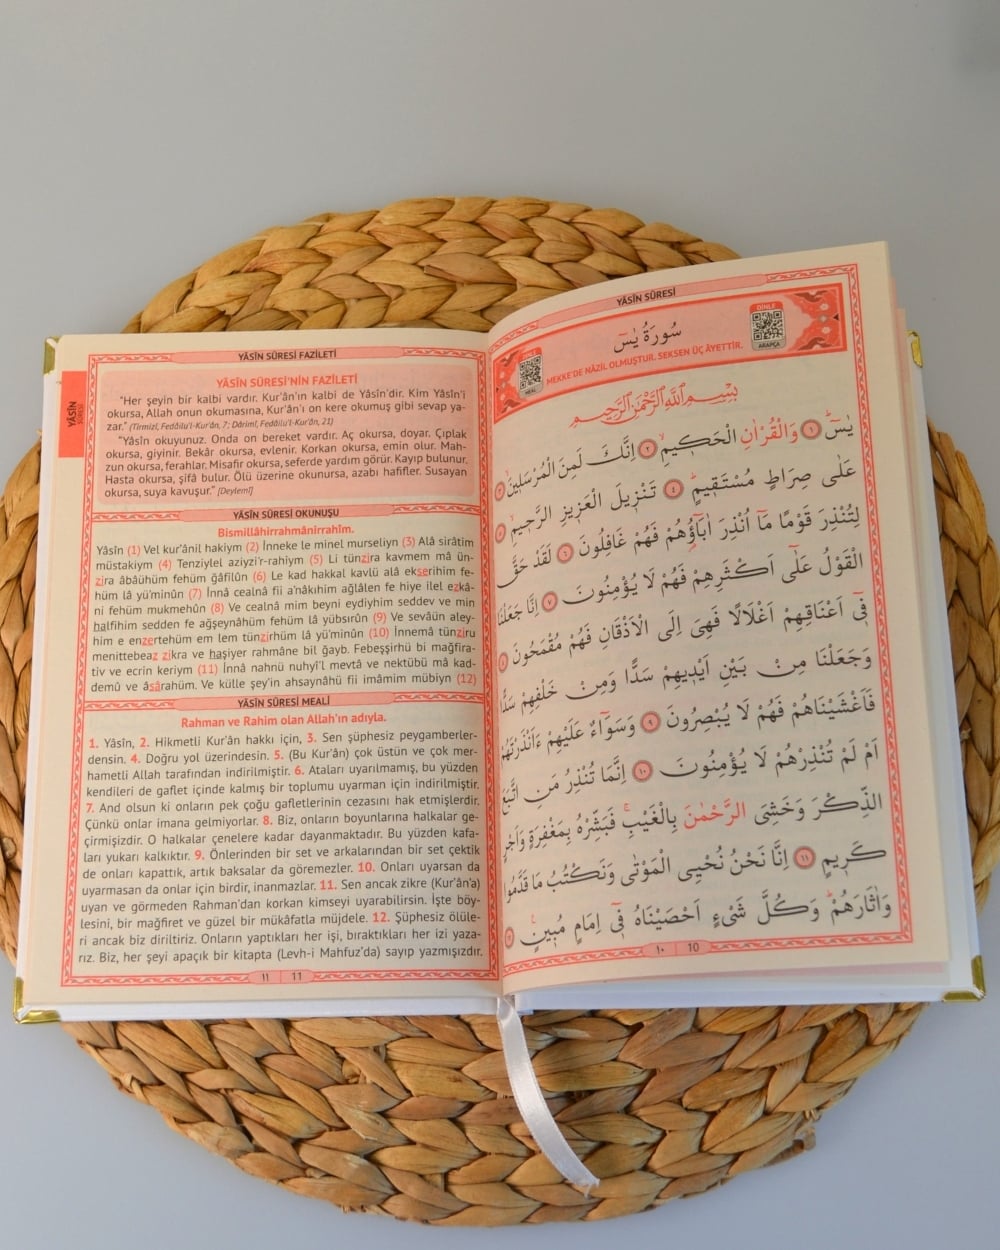 YÂSÎN SÛRESİ FAZİLETİ
YÂSÎN SÛRESİ'NİN FAZİLETİ
"Her şeyin bir kalbi vardır. Kur'ân'ın kalbi de Yâsîn'dir. Kim Yâsîn'i
okursa, Allah onun okumasına, Kur'ân'ı on kere okumuş gibi sevap ya-
zar." (Tirmizî, Fedâilu'l-Kur'ân, 7; Dârimî, Fedâilu'l-Kur'ân, 21)
"Yâsîn okuyunuz. Onda on bereket vardır. Aç okursa, doyar. Çıplak
okursa, giyinir. Bekâr okursa, evlenir. Korkan okursa, emin olur. Mah-
zun okursa, ferahlar. Misafir okursa, seferde yardım görür. Kayıp bulunur.
Hasta okursa, şifâ bulur. Ölü üzerine okunursa, azabı hafifler. Susayan
okursa, suya kavuşur." (Deylemî)
YÂSÎN SÛRESİ
YÂSÎN SÛRESİ OKUNUŞU
Bismillâhirrahmânirrahîm.
Yâsîn (1) Vel kur'ânil hakiym (2) İnneke le minel murseliyn (3) Alâ sirâtim
müstakiym (4) Tenziylel aziyzi'r-rahiym (5) Li tünzira kavmem mâ ün-
zira âbâühüm fehüm ğâfilûn (6) Le kad hakkal kavlü alâ ekserihim fe-
hüm lâ yü'minûn (7) İnnâ cealnâ fii a'nâkıhim ağlâlen fe hiye ilel ezkâ-
ni fehüm mukmehûn (8) Ve cealnâ mim beyni eydiyhim seddev ve min
halfihim sedden fe ağşeynâhüm fehüm lâ yübsırûn (9) Ve sevâün aley-
him e enzertehüm em lem tünzirhüm lâ yü'minûn (10) İnnemâ tünziru
menittebeaz zikra ve haşiyer rahmâne bil ğayb. Febeşşirhü bi mağfira-
tiv ve ecrin keriym (11) İnnâ nahnü nuhyi'l mevtâ ve nektübü mâ kad-
demû ve âsârahüm. Ve külle şey'in ahsaynâhü fii imâmim mübiyn (12)
YÂSÎN SÛRESİ MEALİ
Rahman ve Rahim olan Allah'ın adıyla.
1. Yâsîn, 2. Hikmetli Kur'ân hakkı için, 3. Sen şüphesiz peygamberler-
densin. 4. Doğru yol üzerindesin. 5. (Bu Kur'ân) çok üstün ve çok mer-
hametli Allah tarafından indirilmiştir. 6. Ataları uyarılmamış, bu yüzden
kendileri de gaflet içinde kalmış bir toplumu uyarman için indirilmiştir.
7. And olsun ki onların pek çoğu gafletlerinin cezasını hak etmişlerdir.
Çünkü onlar imana gelmiyorlar. 8. Biz, onların boyunlarına halkalar ge-
çirmişizdir. O halkalar çenelere kadar dayanmaktadır. Bu yüzden kafa-
ları yukarı kalkıktır. 9. Önlerinden bir set ve arkalarından bir set çektik
de onları kapattık, artık baksalar da göremezler. 10. Onları uyarsan da
uyarmasan da onlar için birdir, inanmazlar. 11. Sen ancak zikre (Kur'ân'a)
uyan ve görmeden Rahman'dan korkan kimseyi uyarabilirsin. İşte böy-
lesini, bir mağfiret ve güzel bir mükâfatla müjdele. 12. Şüphesiz ölüle-
ri ancak biz diriltiriz. Onların yaptıkları her işi, bıraktıkları her izi yaza-
rız. Biz, her şeyi apaçık bir kitapta (Levh-i Mahfuz'da) sayıp yazmışızdır.
١١ 11
YÂSÎN SÛRESİ
DİNLE ARAPÇA
سُورَةُ يٰسٓ
MEKKE'DE NÂZİL OLMUŞTUR. SEKSEN ÜÇ ÂYETTİR.
بِسْمِ اللّٰهِ الرَّحْمٰنِ الرَّحِيمِ
يٰسٓ ١ وَالْقُرْاٰنِ الْحَكِيمِ ٢ اِنَّكَ لَمِنَ الْمُرْسَلِينَ ٣
عَلٰى صِرَاطٍ مُسْتَقِيمٍ ٤ تَنْزِيلَ الْعَزِيزِ الرَّحِيمِ
لِتُنْذِرَ قَوْمًا مَٓا اُنْذِرَ اٰبَٓاؤُ۬هُمْ فَهُمْ غَافِلُونَ ٦ لَقَدْ حَقَّ
الْقَوْلُ عَلٰٓى اَكْثَرِهِمْ فَهُمْ لَا يُؤْمِنُونَ ٧ اِنَّا جَعَلْنَا
فِٓى اَعْنَاقِهِمْ اَغْلَالًا فَهِىَ اِلَى الْاَذْقَانِ فَهُمْ مُقْمَحُونَ
وَجَعَلْنَا مِنْ بَيْنِ اَيْدِيهِمْ سَدًّا وَمِنْ خَلْفِهِمْ سَدًّا
فَاَغْشَيْنَاهُمْ فَهُمْ لَا يُبْصِرُونَ ٩ وَسَوَٓاءٌ عَلَيْهِمْ ءَاَنْذَرْتَهُمْ
اَمْ لَمْ تُنْذِرْهُمْ لَا يُؤْمِنُونَ ١٠ اِنَّمَا تُنْذِرُ مَنِ اتَّبَعَ
الذِّكْرَ وَخَشِىَ الرَّحْمٰنَ بِالْغَيْبِ فَبَشِّرْهُ بِمَغْفِرَةٍ وَاَجْرٍ
كَرِيمٍ ١١ اِنَّا نَحْنُ نُحْيِى الْمَوْتٰى وَنَكْتُبُ مَا قَدَّمُوا
وَاٰثَارَهُمْ وَكُلَّ شَىْءٍ اَحْصَيْنَاهُ فِٓى اِمَامٍ مُبِينٍ
١٠ 10